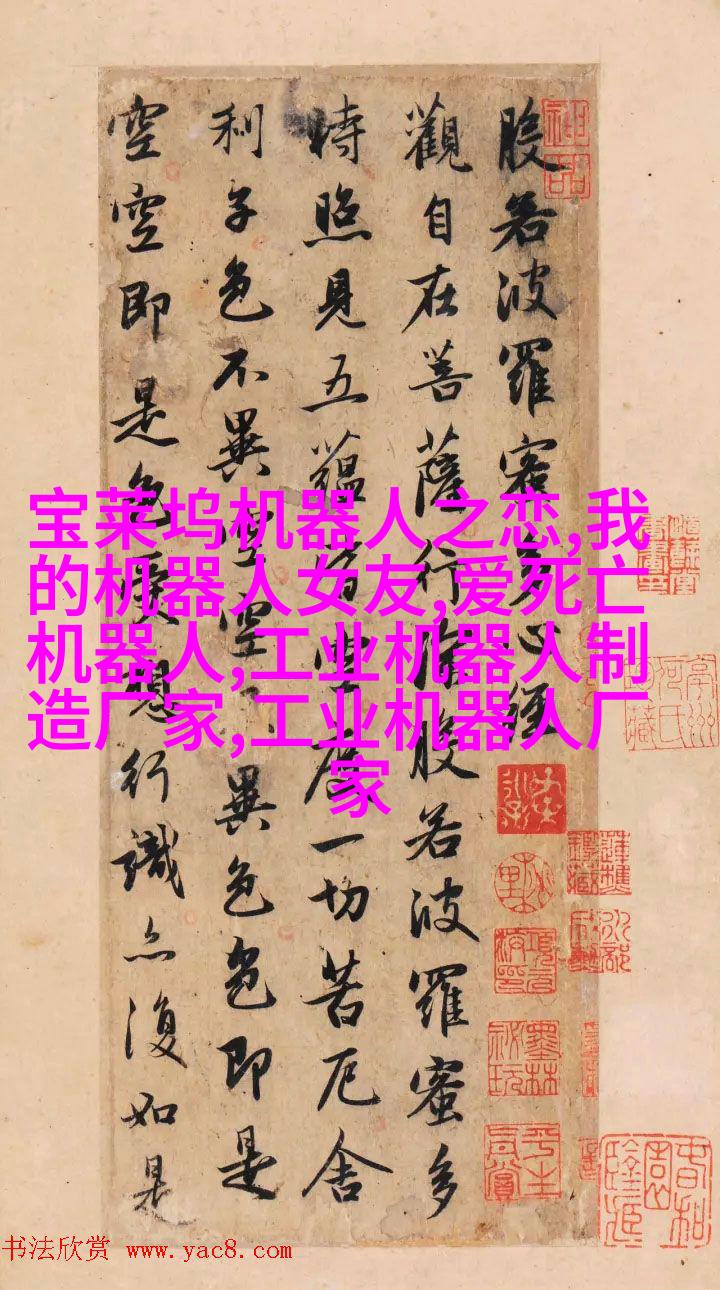 般若波羅蜜多心經
觀自在菩薩行深般若波羅蜜多
時照見五蘊皆空度一切苦厄舍
利子色不異空空不異色色即是
空空即是色受想行識亦復如是
宝莱坞机器人之恋,我
的机器人女友,爱死亡
机器人,工业机器人制
造厂家,工业机器人厂
家
书法欣赏 www.yac8.com